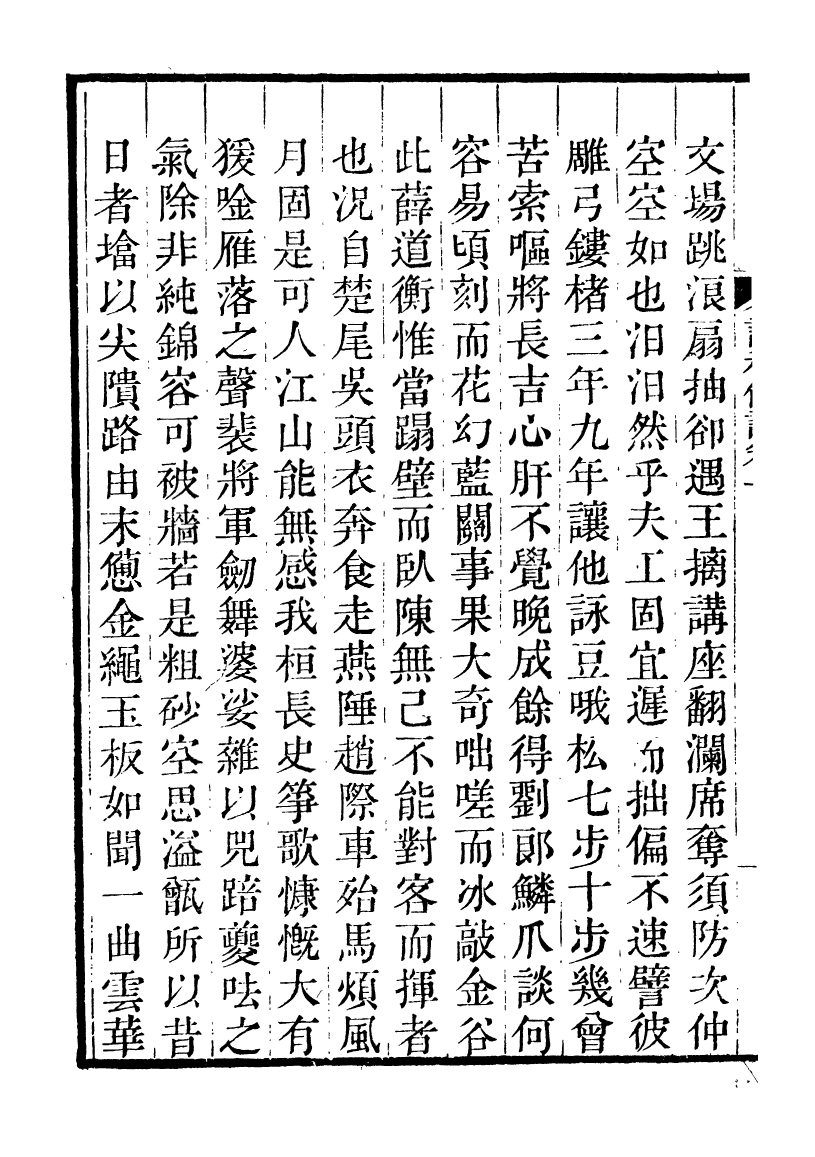 文場跳浪扇抽卻遇王摛講座翻瀾席奪須防次仲
空空如也汨汨然乎夫工固宜遲而拙偏不速譬彼
雕弓鏤楮三年九年讓他詠豆哦松七步十步幾曾
苦索嘔將長吉心肝不覺晚成餘得劉郎鱗爪談何
容易頃刻而花幻藍關事果大奇咄嗟而冰敲金谷
此薛道衡惟當蹋壁而臥陳無己不能對客而揮者
也況自楚尾吳頭衣奔食走燕陲趙際車殆馬煩風
月固是可人江山能無感我桓長史箏歌慷慨大有
猨唫雁落之聲裴將軍劒舞婆娑雜以兕踣夔呿之
氣除非純錦容可被牆若是粗砂空思溢甑所以昔
日者墖以尖隤路由末憊金繩玉板如聞一曲雲華